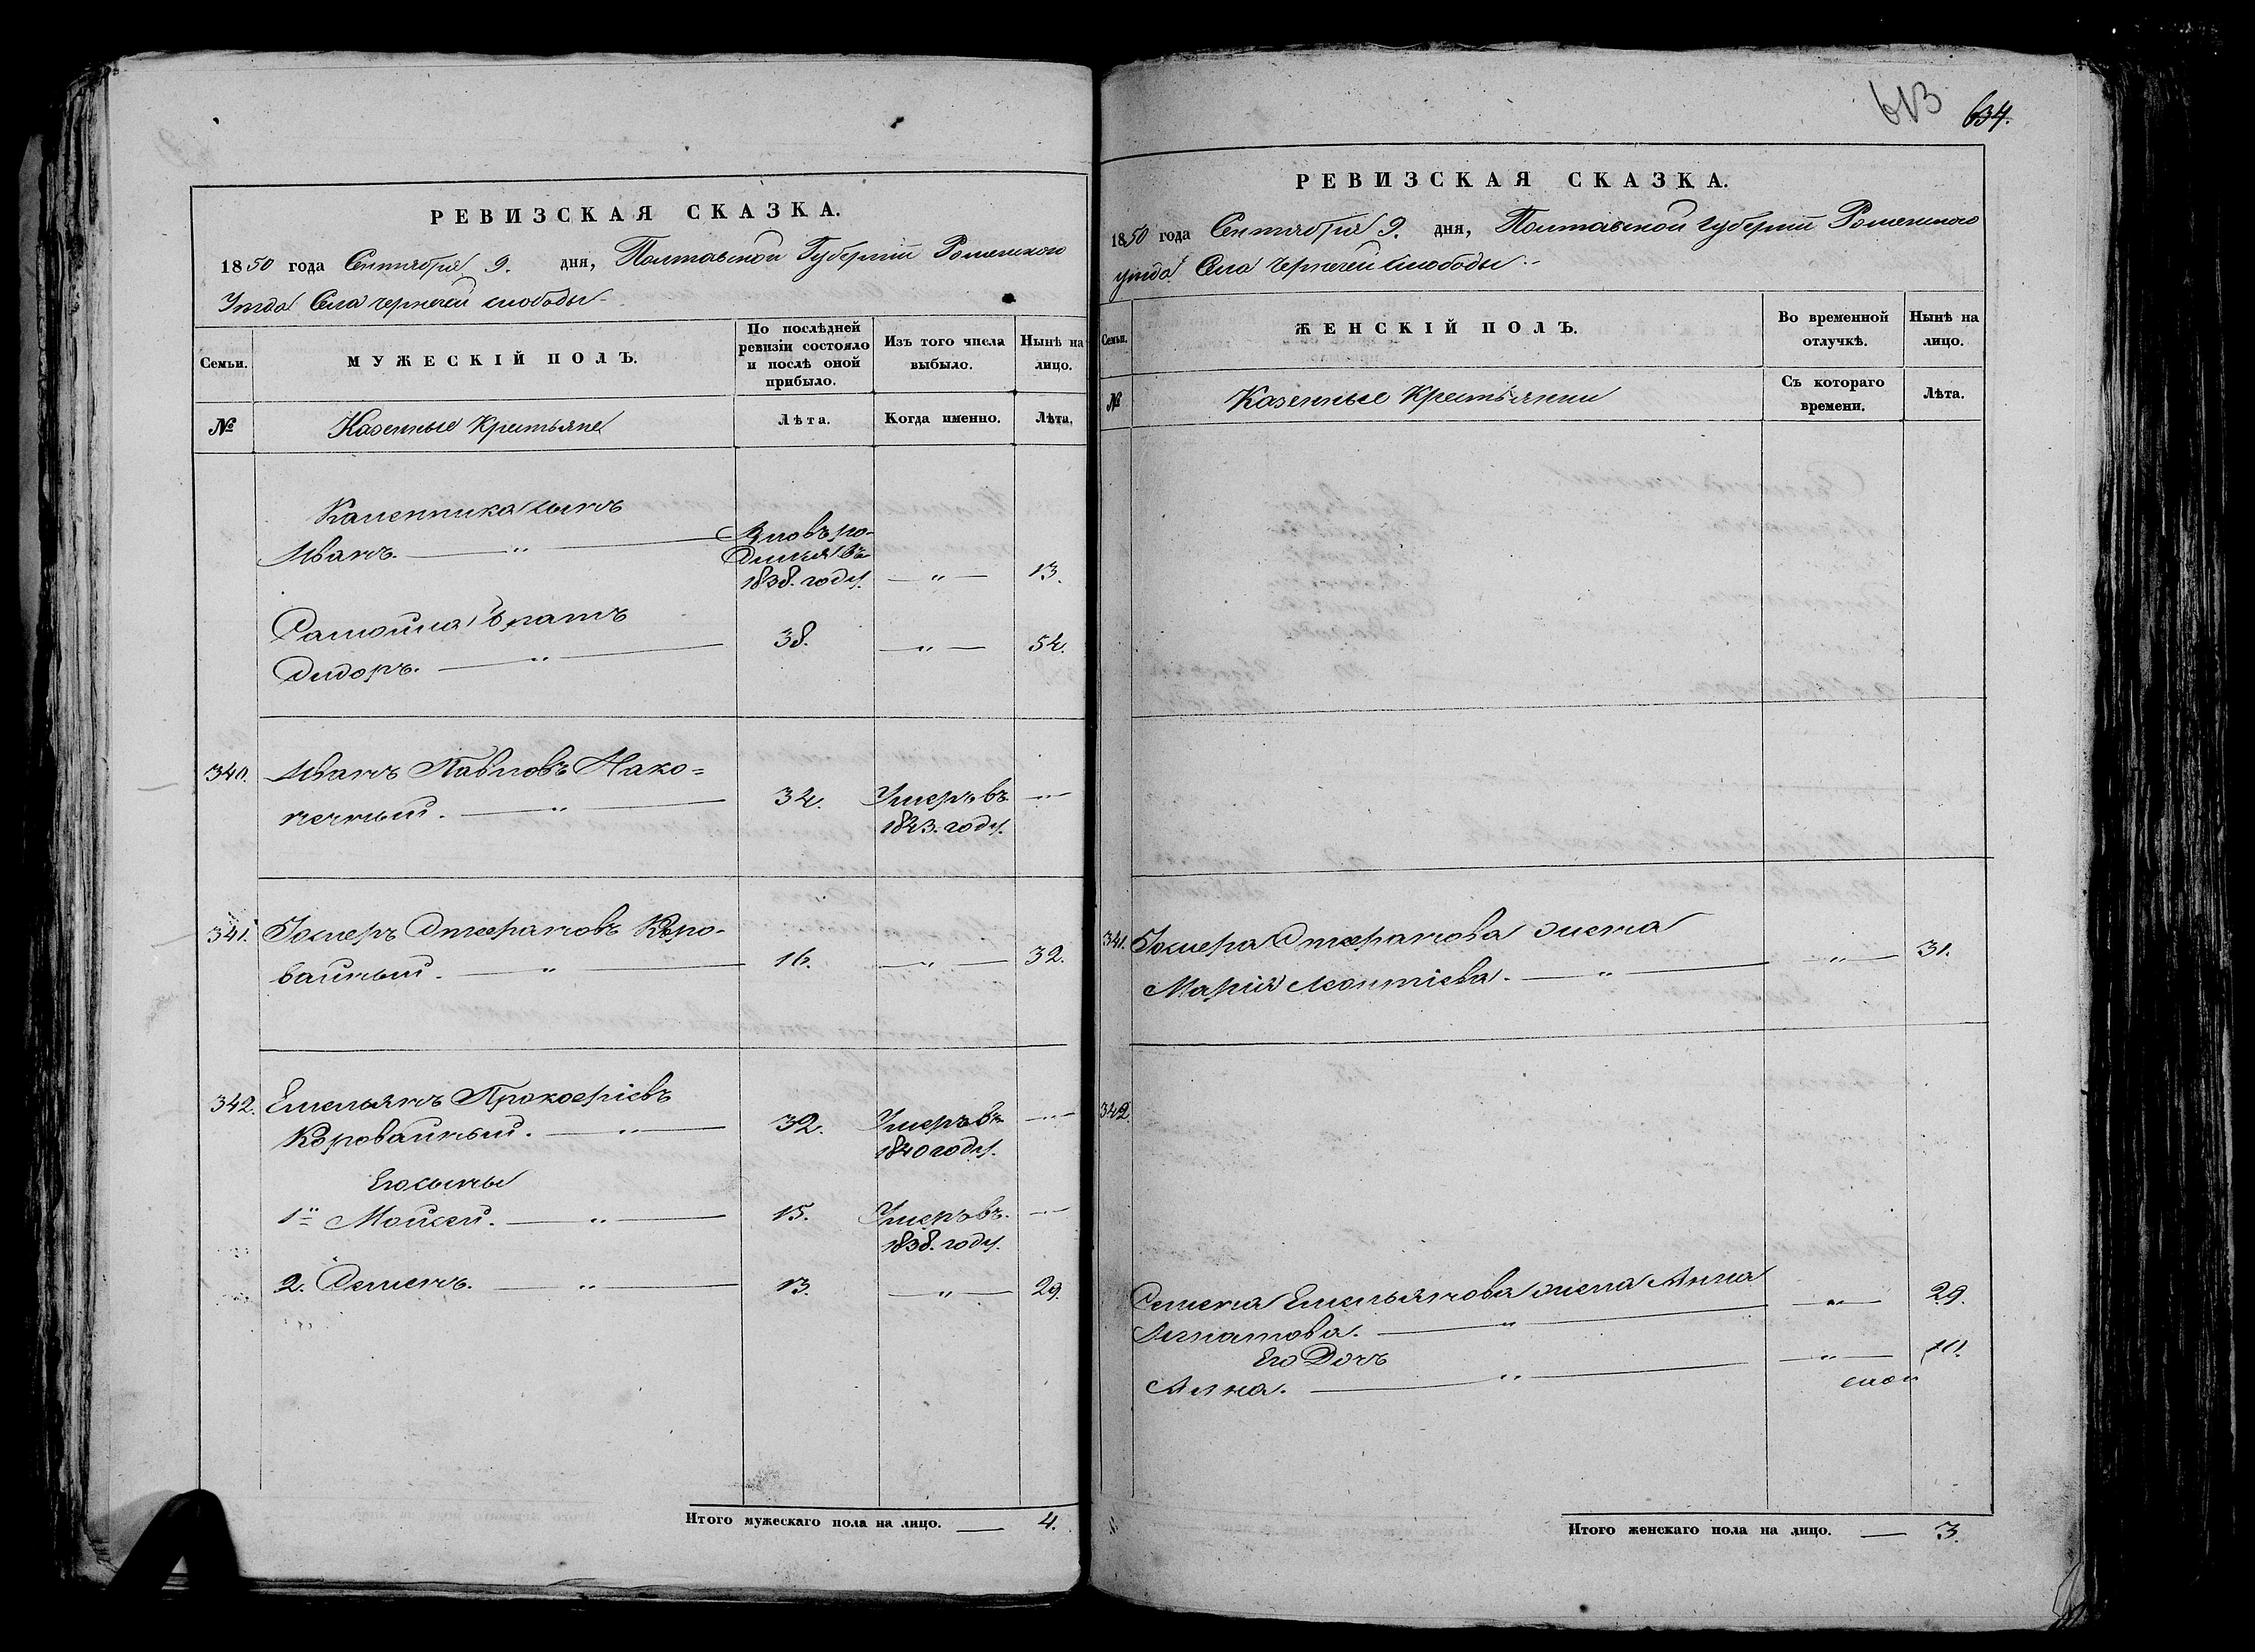 РЕВИЗСКАЯ СКАЗКА.
1850 года Сентября 9. дня, Полтавской Губерніи Роменского
Уѣзда Села Чернечей слободы
Семьи.
МУЖЕСКІЙ ПОЛЪ.
По послѣдней ревизіи состояло и послѣ оной прибыло.
Изъ того числа выбыло.
Нынѣ на лицо.
№
Казенные Крестьяне
Лѣта.
Когда именно.
Лѣта.
Каленника сынъ
Иванъ. — " — Вновь ро-
дился въ
1838. году. — " — 13.
Самойла братъ
Сидоръ. — " — 38. — " — 54.
340. Иванъ Павловъ Нако=
нечный. — " — 34. Умеръ въ — " —
1843. году.
341. Іосиеръ Стефановъ Коро-
вайный. — " — 16. — " — 32.
342. Емельянъ Прокофіевъ
Коровайный. — " — 32. Умеръ въ — " —
1840 году.
Его сыны
1й Мойсей. — " — 15. Умеръ въ — " —
1838. году.
2. Семенъ. — " — 13. — " — 29.
Итого мужескаго пола на лицо. — 4.
613 634.
РЕВИЗСКАЯ СКАЗКА.
1850 года Сентября 9. дня, Полтавской Губерніи Роменского
уѣзда Села Чернечей слободы
Семьи.
ЖЕНСКІЙ ПОЛЪ.
Во временной отлучкѣ.
Нынѣ на лицо.
№
Казенные Крестьянки
Съ котораго времени.
Лѣта.
341. Іосиера Стефанова жена
Марія Леонтіева. — " — — " — 31.
342.
Семена Емельянова жена Анна — " — 29.
Игнатова. — " —
Его Дочь
Анна. — " — — " — 10.
Итого женскаго пола на лицо. — 3.